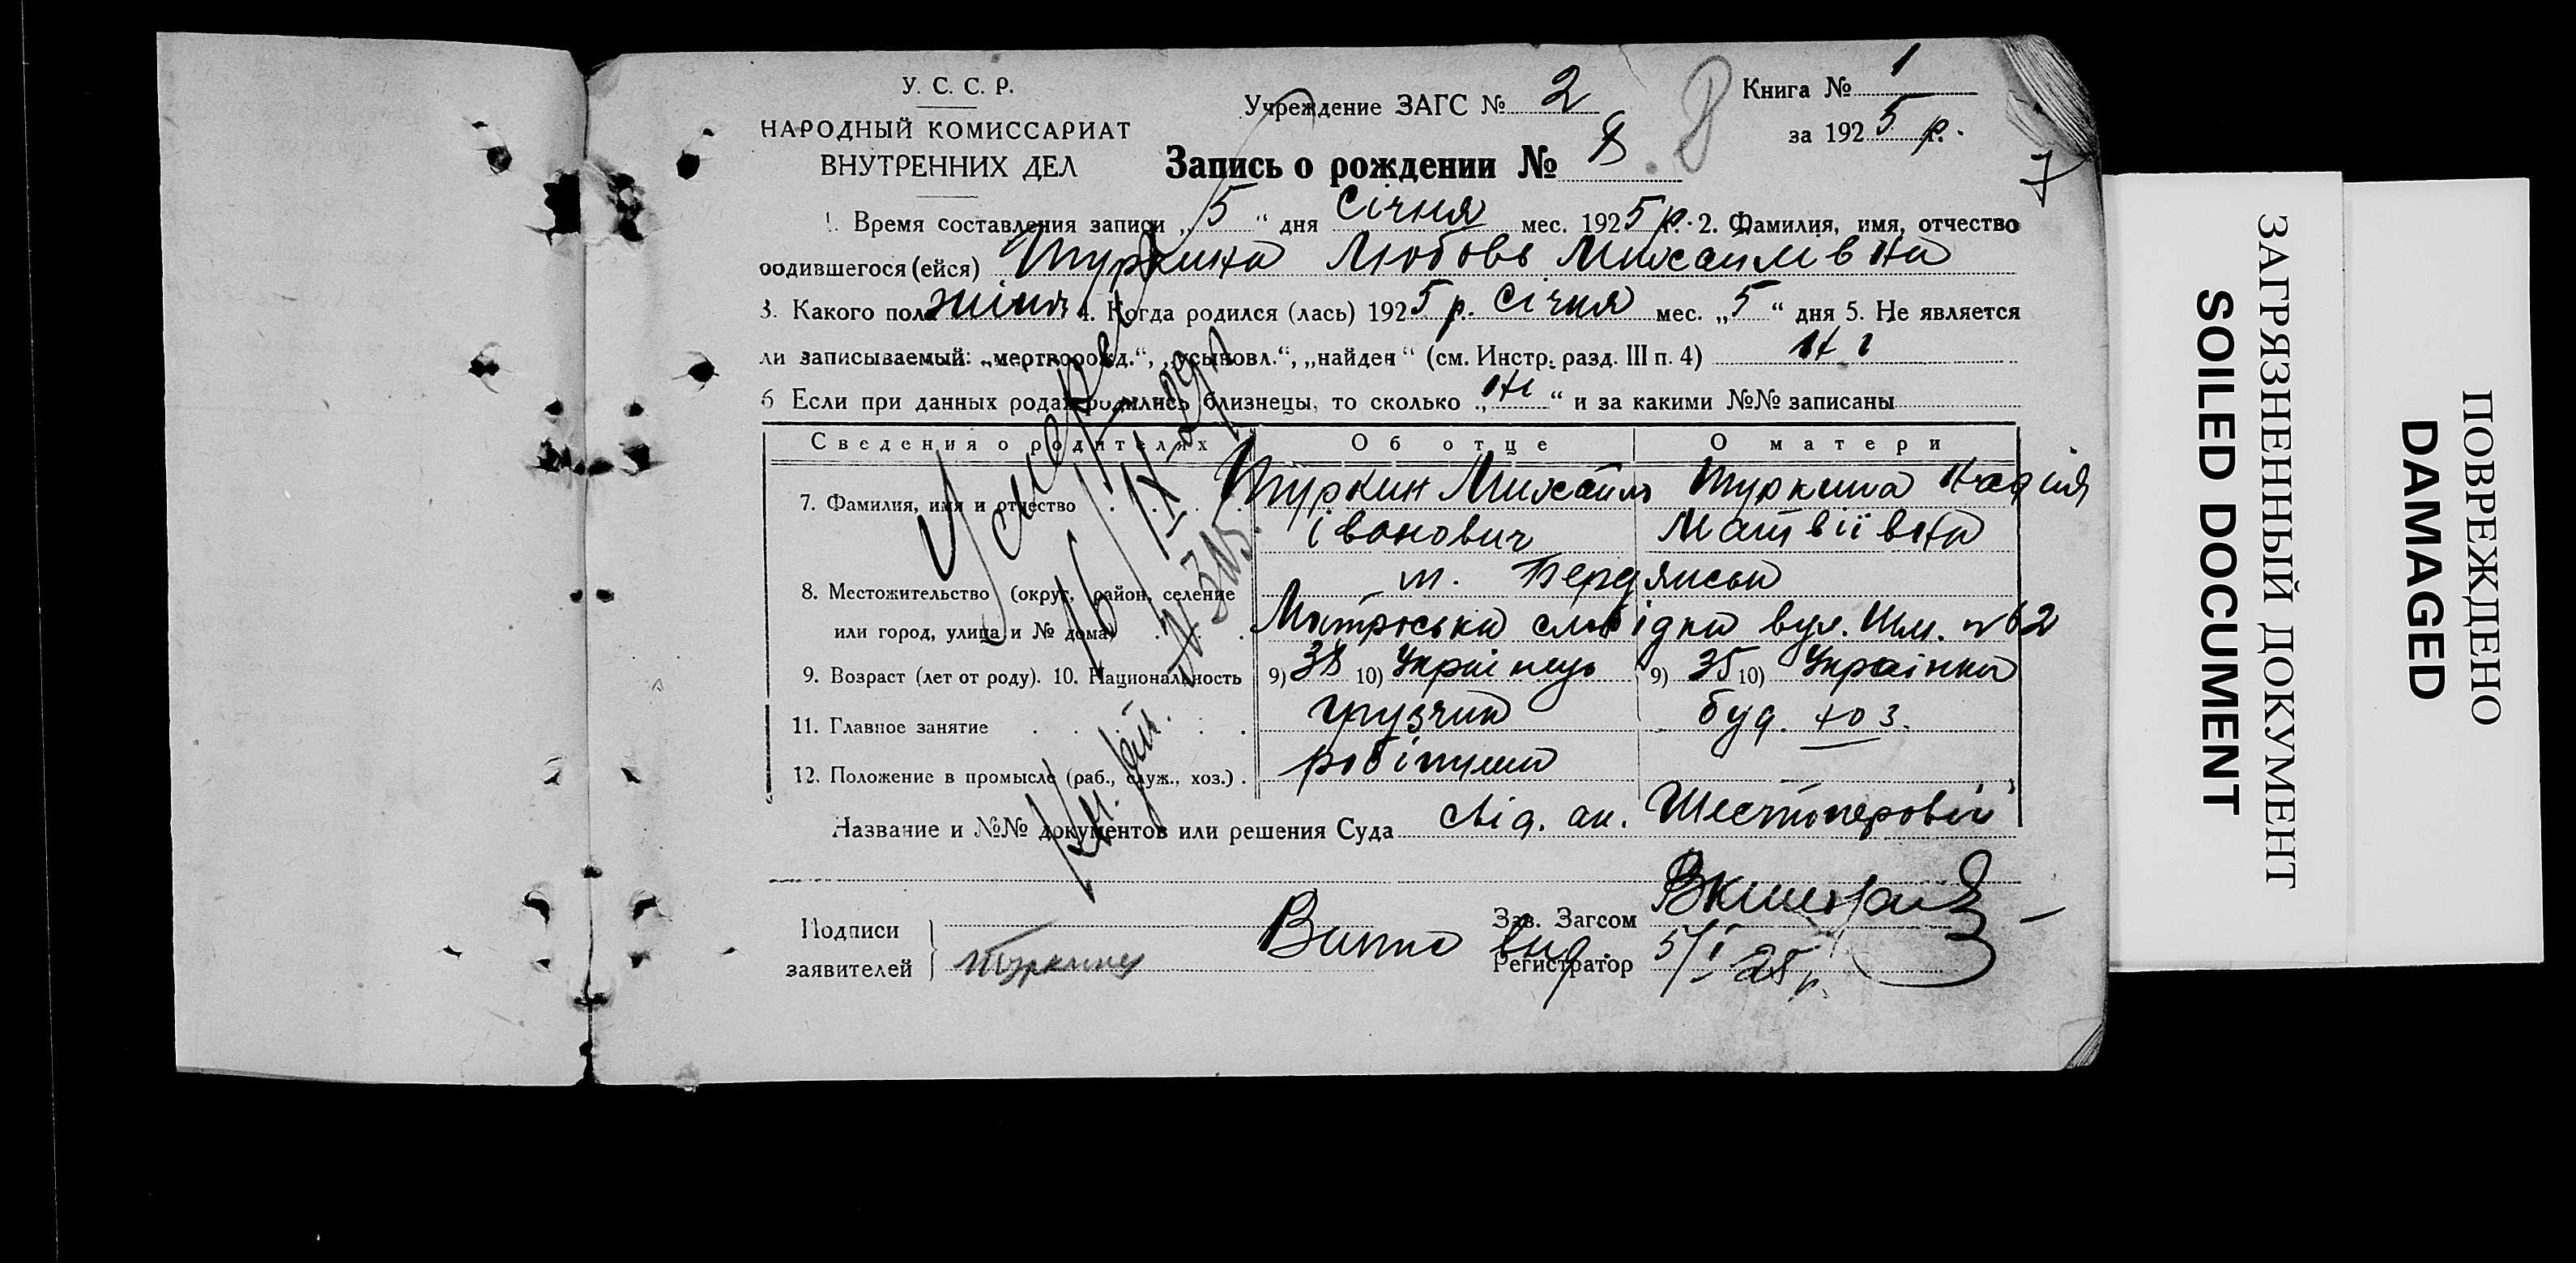 У. С. С. Р.
НАРОДНЫЙ КОМИССАРИАТ
ВНУТРЕННИХ ДЕЛ
Учреждение ЗАГС № 2
Книга № 1
за 1925 р.
Запись о рождении № 8 8
7
1. Время составления записи „5“ дня Січня мес. 1925 р. 2. Фамилия, имя, отчество
родившегося (ейся) Туркина Любовь Михайлівна
3. Какого пола жіноч 4. Когда родился (лась) 1925 р. Січня мес. „5“ дня 5. Не является
ли записываемый: „мертворожд.“, „усыновл.“, „найден“ (см. Инстр. разд. III п. 4) ні
6 Если при данных родах родились близнецы, то сколько „ні“ и за какими №№ записаны
Сведения о родителях Об отце О матери
7. Фамилия, имя и отчество Туркин Михайло Туркина Надія
Іванович Матвіївна
м. Бердянськ
8. Местожительство (округ, район, селение
или город, улица и № дома) Матроська слобідка вул. Шм. № 62
9. Возраст (лет от роду). 10. Национальность 9) 38 10) Українець 9) 35 10) Українка
11. Главное занятие грузчик буд. хоз.
12. Положение в промысле (раб., служ., хоз.) робітник
Название и №№ документов или решения Суда свід. ак. Шестоперовій
Подписи
заявителей
Туркину
Зав. Загсом
Регистратор
Витяг вид. 5/I 25 р.
№ 315
ЗАГРЯЗНЕННЫЙ ДОКУМЕНТ
SOILED DOCUMENT
ПОВРЕЖДЕНО
DAMAGED